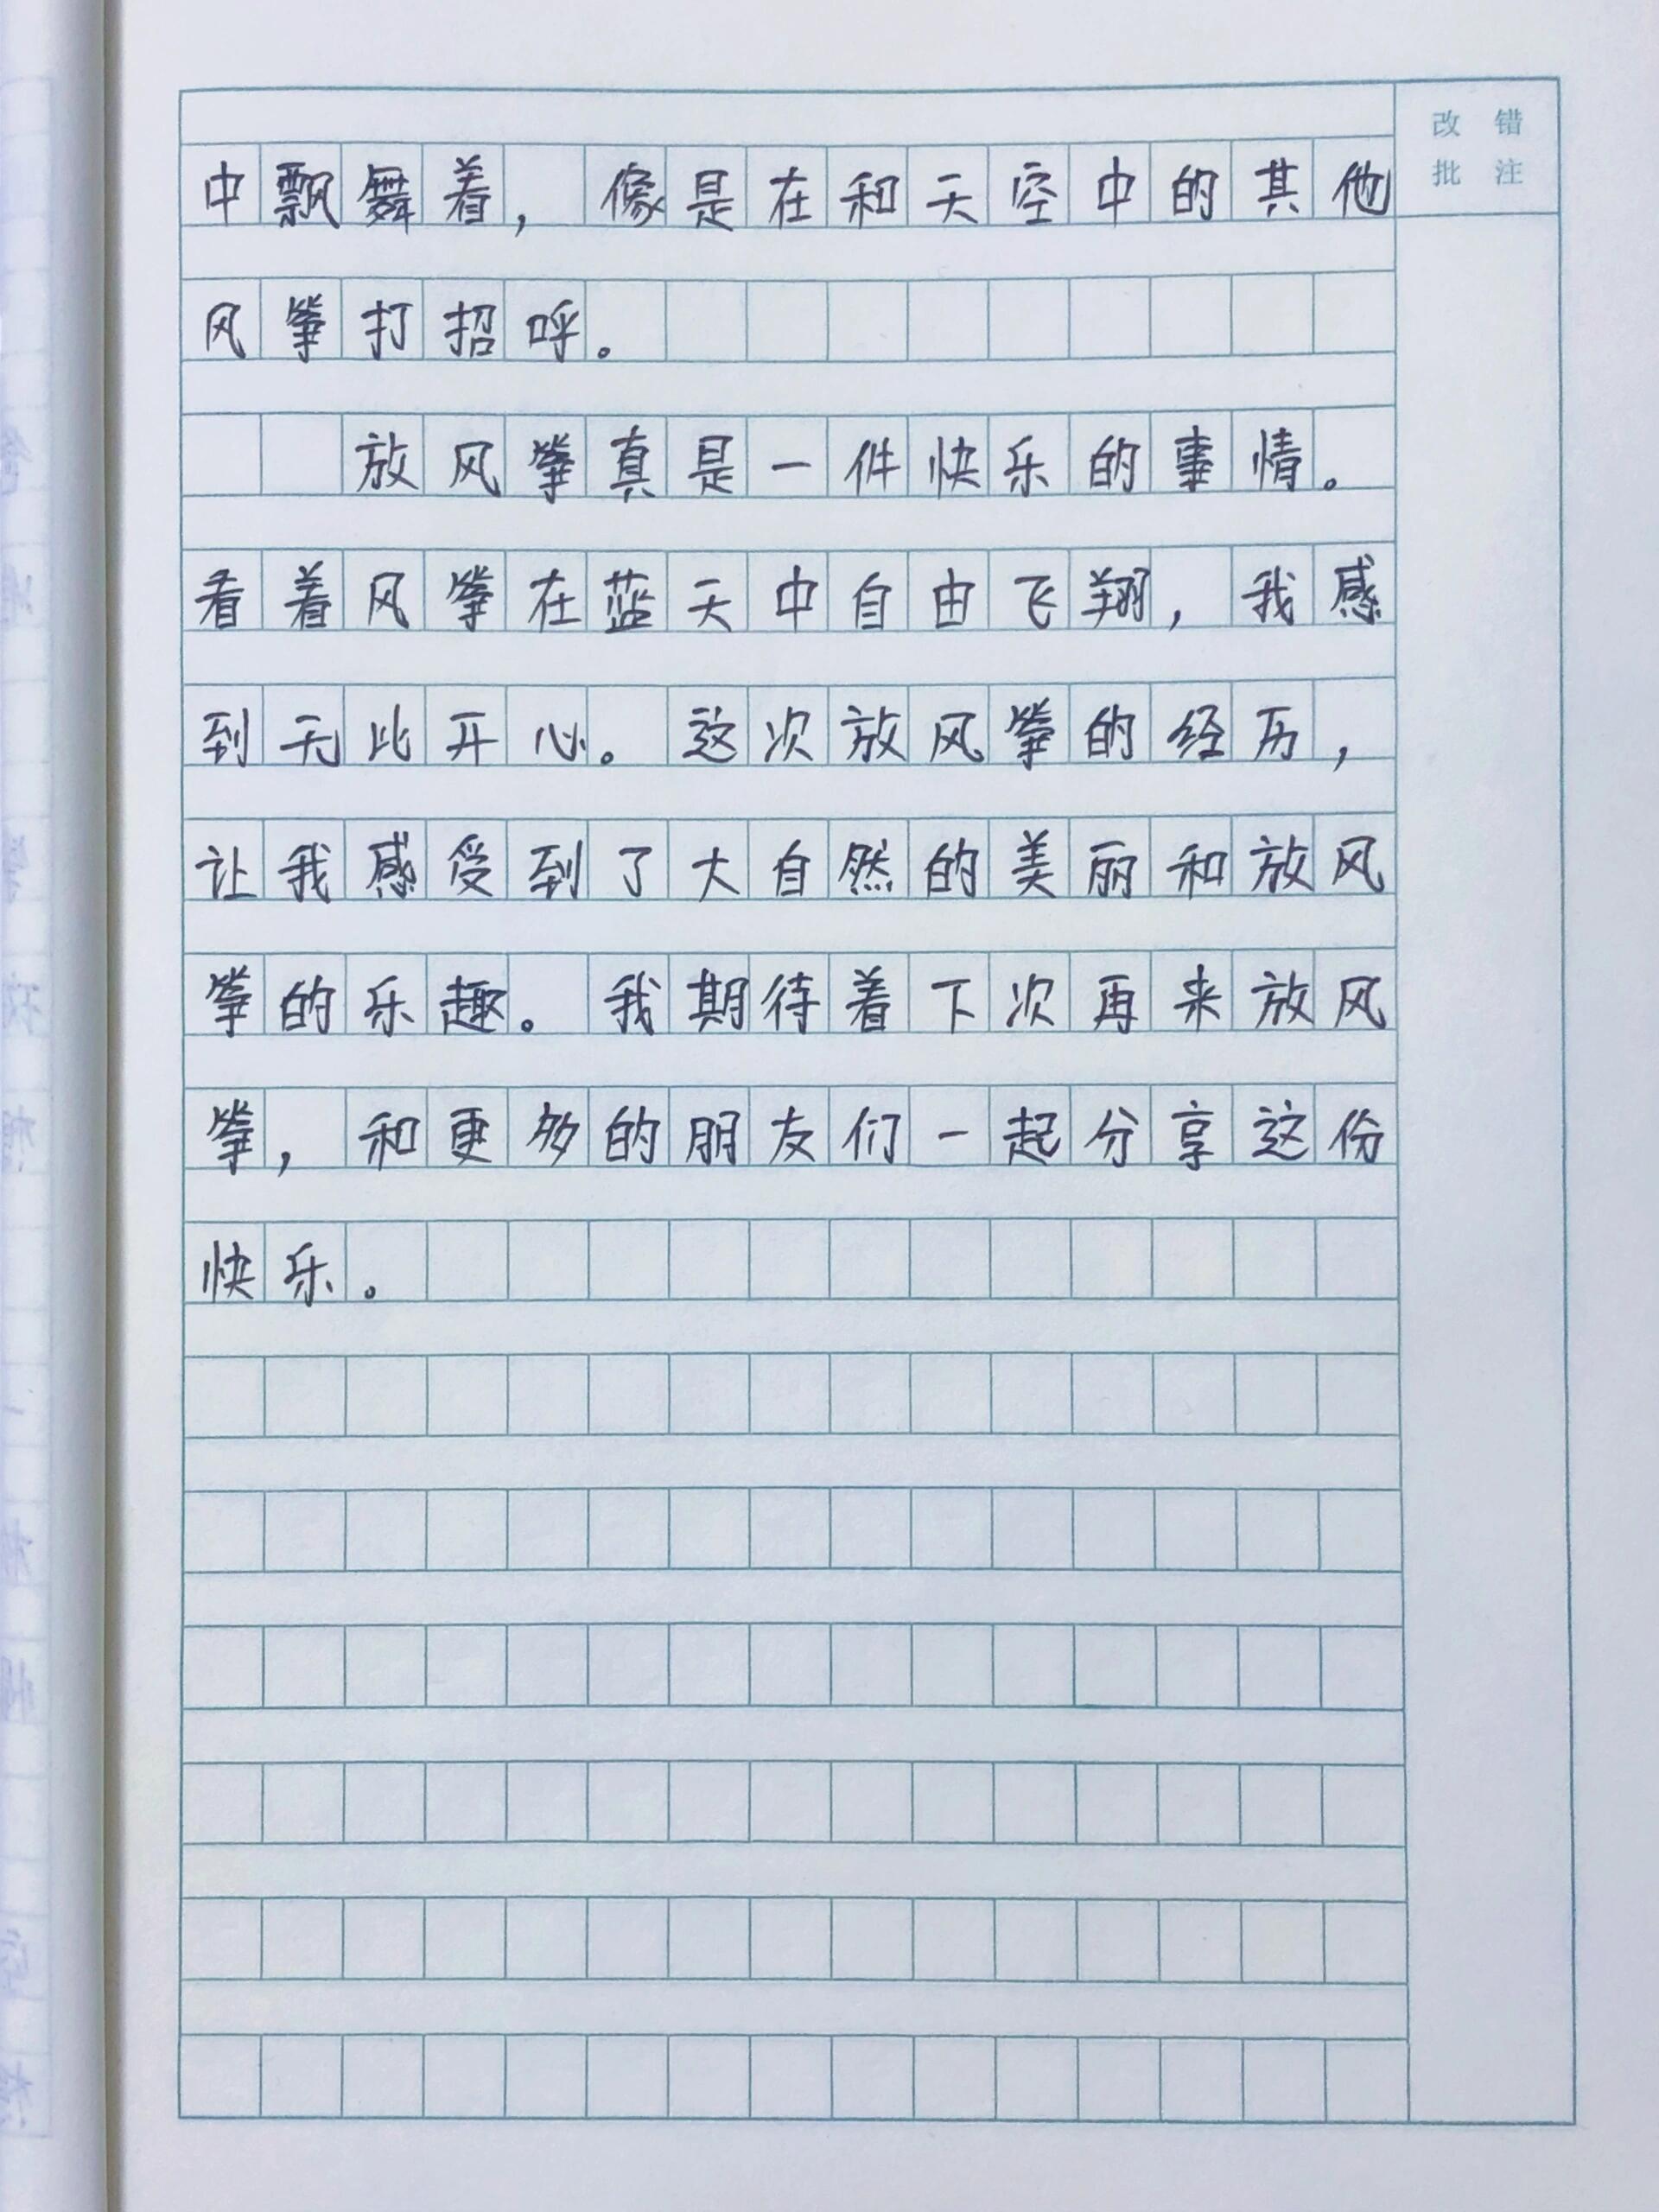 改 错
批 注
中飘舞着，像是在和天空中的其他
风筝打招呼。
放风筝真是一件快乐的事情。
看着风筝在蓝天中自由飞翔，我感
到无比开心。这次放风筝的经历，
让我感受到了大自然的美丽和放风
筝的乐趣。我期待着下次再来放风
筝，和更多的朋友们一起分享这份
快乐。